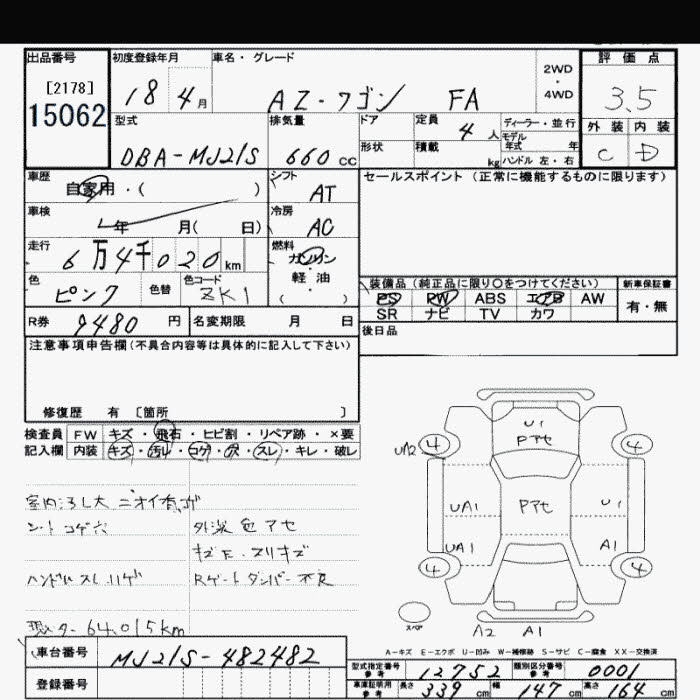 出品番号
[2178]
15062
初度登録年月
18 4月
車名・グレード
AZ-ワゴン FA
2WD
・
4WD
評価点
3.5
外装 内装
C D
型式
DBA-MJ21S
排気量
660cc
ドア
形状
定員
4人
積載
kg
ディーラー・並行
モデル
年式 年
ハンドル 左・右
車歴
自家用・( )
シフト
AT
セールスポイント (正常に機能するものに限ります)
車検
年 月( 日)
冷房
AC
走行
6万4千020km
燃料
ガソリン
軽・油
( )
色
ピンク
色替
色コード
ZK1
装備品(純正品に限り○をつけてください)
PS PW ABS エアB AW
SR ナビ TV カワ
新車保証書
有・無
R券
9480円
名変期限 月 日
後日品
注意事項申告欄(不具合内容等は具体的に記入して下さい)
修復歴 有 〔箇所 〕
検査員 FW キズ・飛石・ヒビ割・リペア跡・×要
記入欄 内装 キズ・汚レ・コゲ・穴・スレ・キレ・破レ
シートコゲ穴
外装色アセ
キズ大・スリキズ
ハンドルスレ ハゲ
Rゲートダンパー不良
64,015km
U1
Pアセ
UA2
4
4
UA1
Pアセ
U1
UA1
A1
4
4
スペア
A2 A1
A-キズ E-エクボ U-凹み W-補修跡 S-サビ C-腐食 XX-交換済
車台番号
MJ21S-482482
登録番号
型式指定番号
参考
12752
類別区分番号
参考
0001
車庫証明用
参考
長さ 339cm 幅 147cm 高さ 164cm